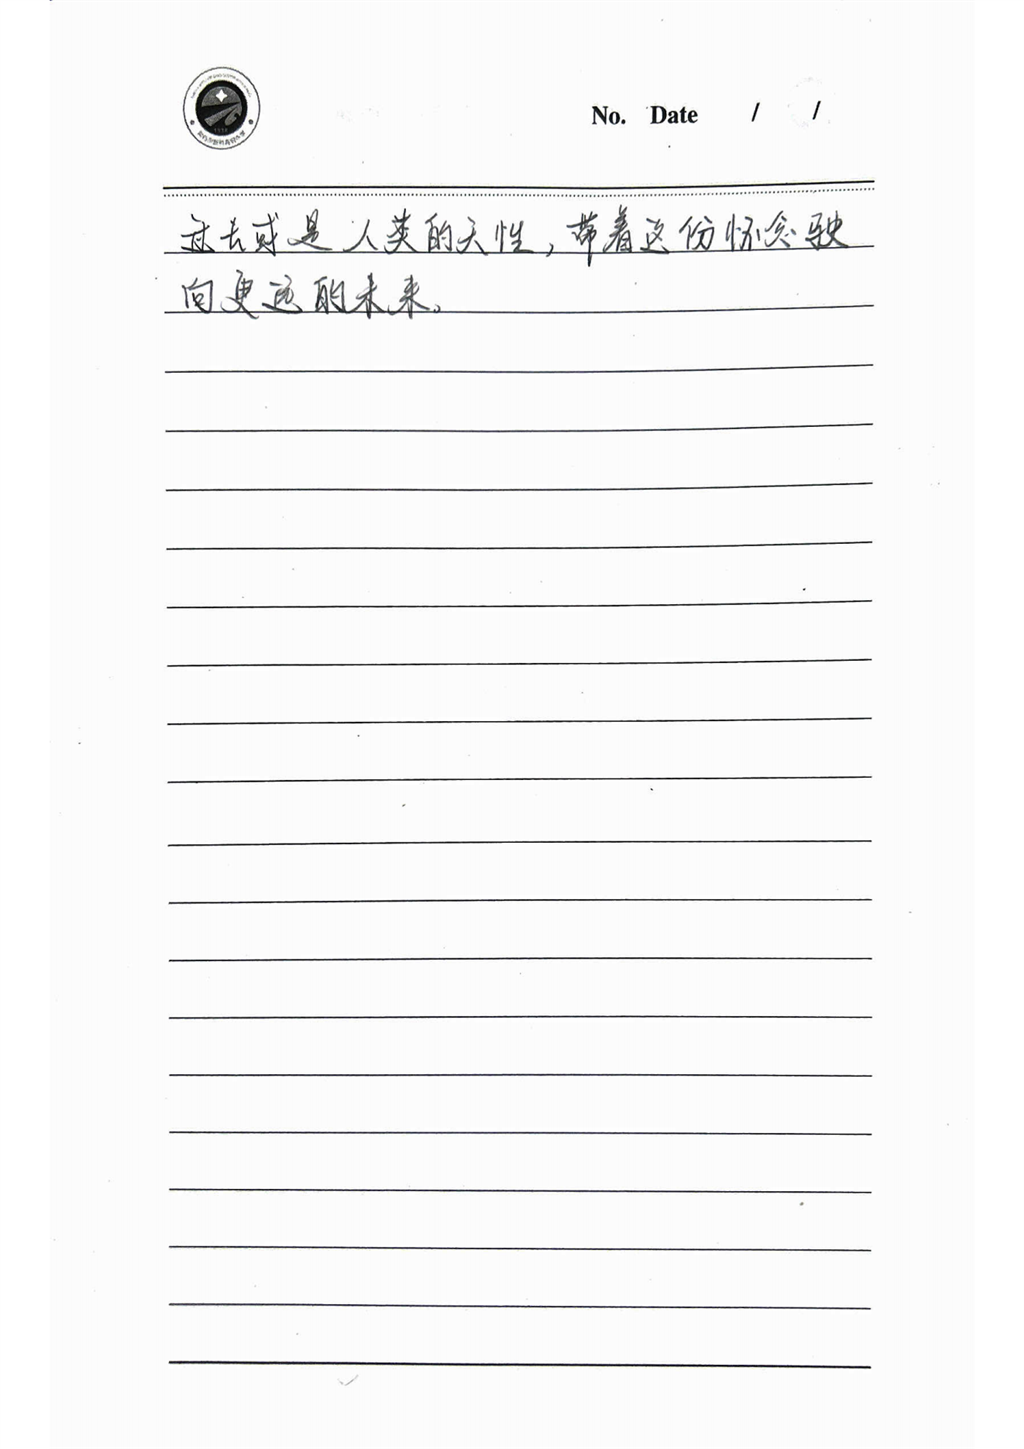 No. Date / /
过去或是人类的天性,带着这份怀念驶
向更远的未来。